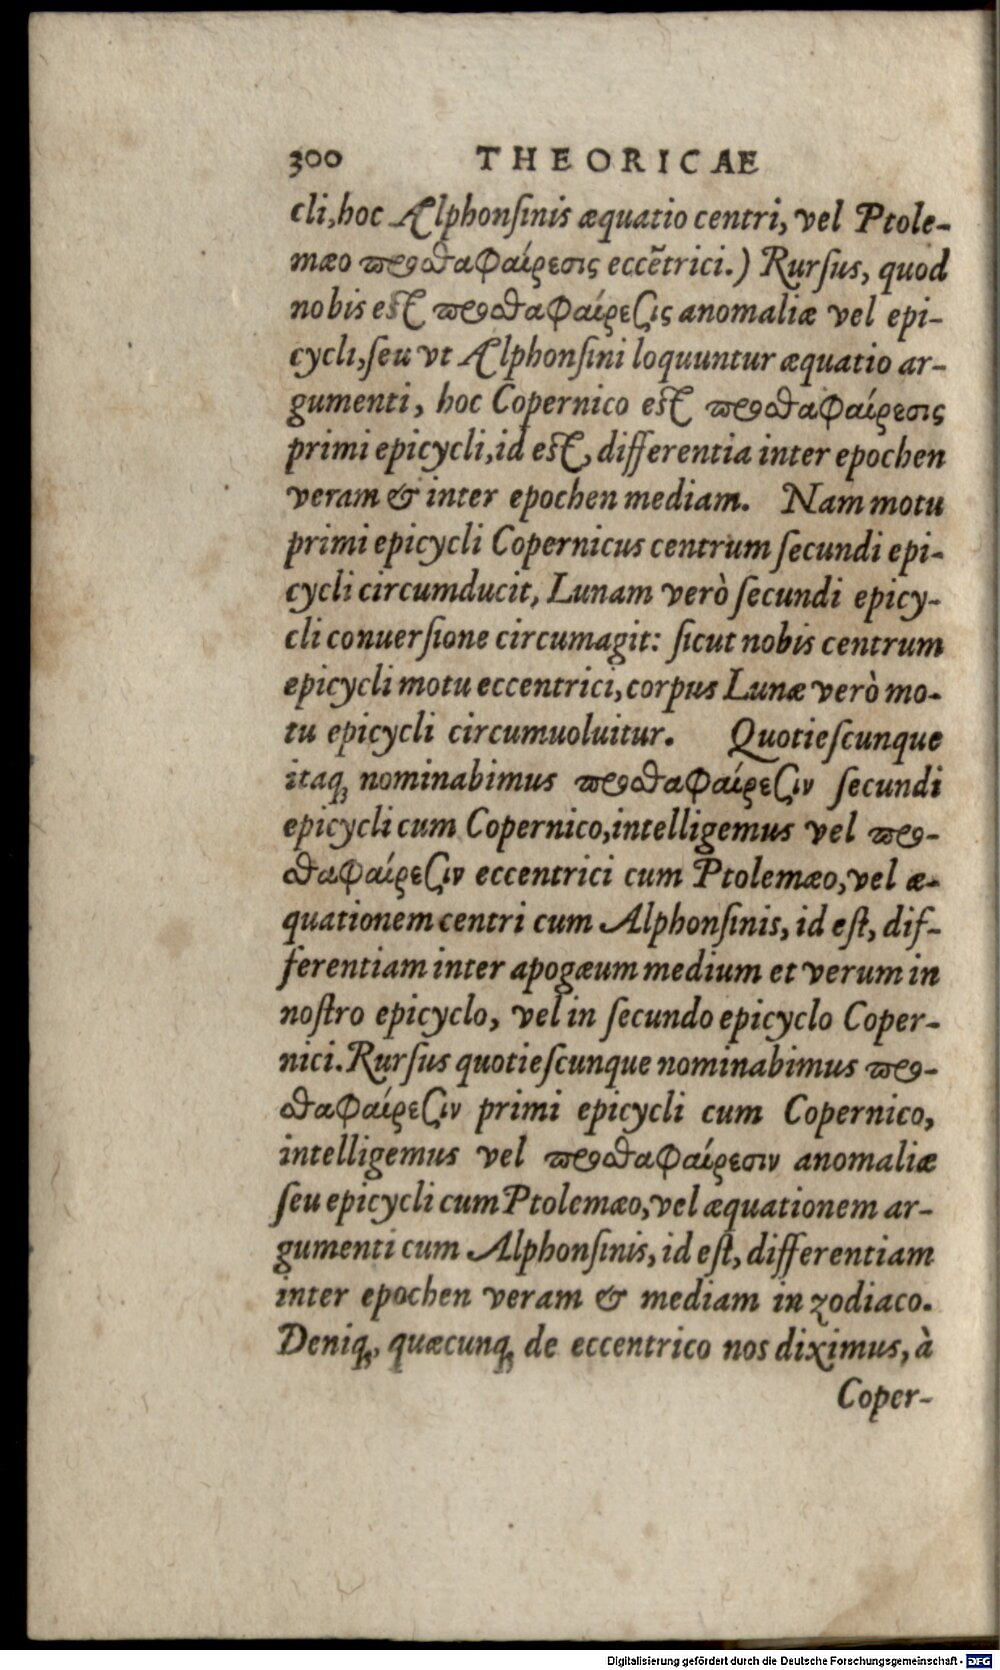 300 THEORICAE
cli, hoc Alphonſinis æquatio centri, vel Ptole-
mæo προσθαφαίρεσις eccẽtrici.) Rurſus, quod
nobis eſt προσθαφαίρεσις anomaliæ vel epi-
cycli, ſeu vt Alphonſini loquuntur æquatio ar-
gumenti, hoc Copernico eſt προσθαφαίρεσις
primi epicycli, id eſt, differentia inter epochen
veram & inter epochen mediam. Nam motu
primi epicycli Copernicus centrum ſecundi epi-
cycli circumducit, Lunam verò ſecundi epicy-
cli conuerſione circumagit: ſicut nobis centrum
epicycli motu eccentrici, corpus Lunæ verò mo-
tu epicycli circumuoluitur. Quotieſcunque
itaq; nominabimus προσθαφαίρεσιν ſecundi
epicycli cum Copernico, intelligemus vel προσ-
θαφαίρεσιν eccentrici cum Ptolemæo, vel æ-
quationem centri cum Alphonſinis, id eſt, dif-
ferentiam inter apogæum medium et verum in
noſtro epicyclo, vel in ſecundo epicyclo Coper-
nici. Rurſus quotieſcunque nominabimus προσ-
θαφαίρεσιν primi epicycli cum Copernico,
intelligemus vel προσθαφαίρεσιν anomaliæ
ſeu epicycli cum Ptolemæo, vel æquationem ar-
gumenti cum Alphonſinis, id eſt, differentiam
inter epochen veram & mediam in zodiaco.
Deniq;, quæcunq; de eccentrico nos diximus, à
Coper-
Digitalisierung gefördert durch die Deutsche Forschungsgemeinschaft - DFG